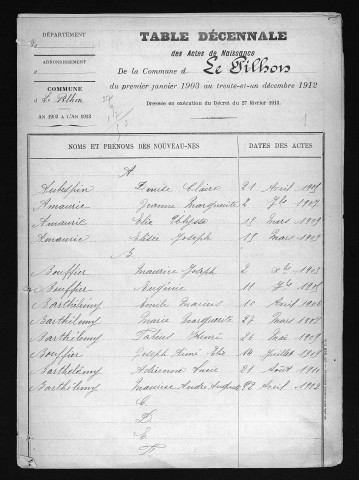 DÉPARTEMENT
TABLE DÉCENNALE
des Actes de Naissance
ARRONDISSEMENT
De la Commune d Le Pilhon
COMMUNE
du premier janvier 1903 au trente-et-un décembre 1912
d Le Pilhon
Dressée en exécution du Décret du 27 février 1913.
AN 1903 A L'AN 1913
NOMS ET PRÉNOMS DES NOUVEAU-NÉS DATES DES ACTES
A
Aubespin Denise Claire 21 Avril
Amauric Jeanne Marguerite 2 7bre 1907
Amauric Elie 15 Mars 1909
Amauric Elisée Joseph 15 Mars 1909
B
Bouffier Maurice Joseph 2 Xbre 1903
Bouffier Eugénie 11 7bre 1905
Barthélemy Emile Marius 10 Avril 1906
Barthélemy Marie Marguerite 27 Mars 1908
Barthélemy Henri 26 Mai 1909
Bouffier Joseph Rémi Elie 14 Juillet 1909
Barthélemy Adrienne Lucie 21 Août 1910
Barthélemy Maurice André 22 Avril 1912
C
D
E
F